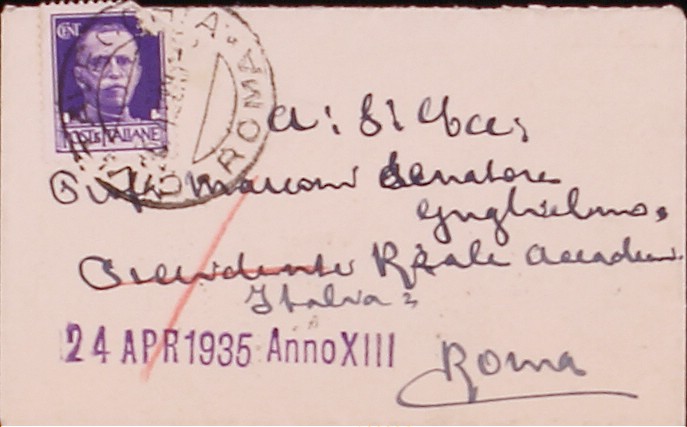 CENT
POSTE ITALIANE
ROMA
a: S: E
Marconi Senatore
Guglielmo,
Presidente Reale Accadem.
Italia,
24 APR 1935 Anno XIII
Roma